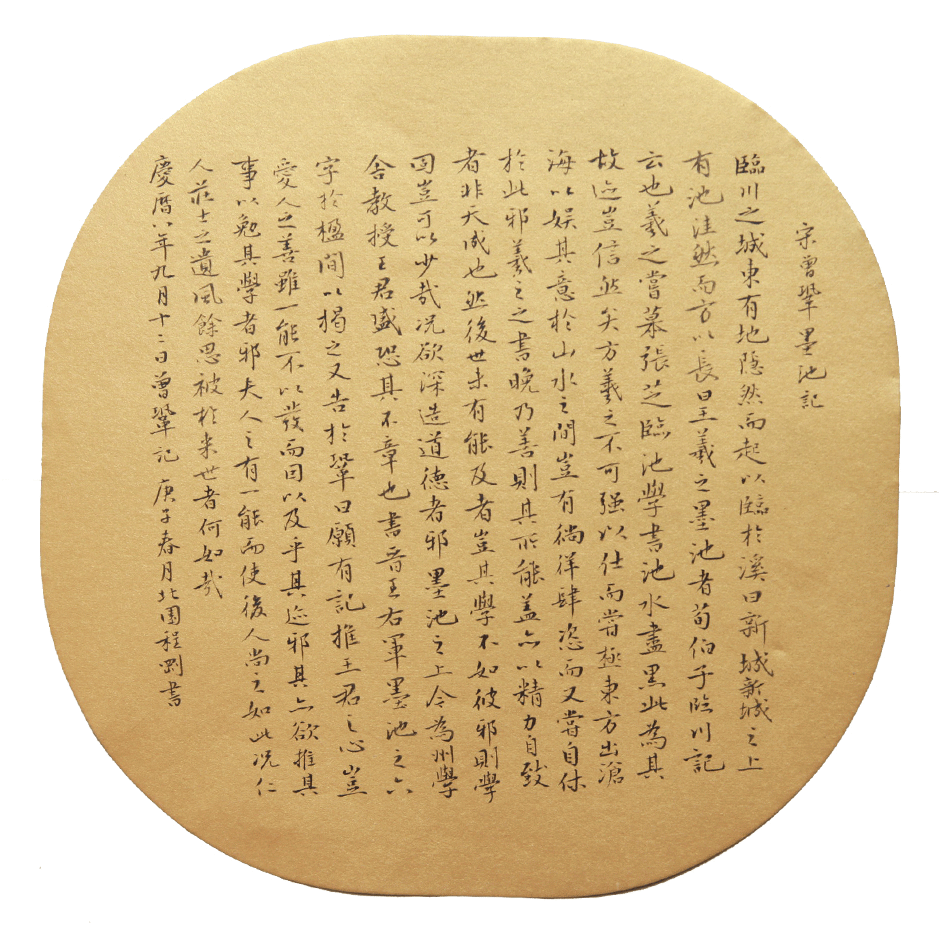 宋曾鞏墨池記
臨川之城東有地隐然而起以臨於溪曰新城新城之上
有池洼然而方以長曰王羲之墨池者荀伯子臨川記
云也羲之嘗慕張芝臨池學書池水盡黑此為其
故迹豈信然矣方羲之不可强以仕而嘗極東方出滄
海以娱其意於山水之間豈有徜徉肆恣而又嘗自休
於此邪羲之之書晚乃善則其所能蓋亦以精力自致
者非天成也然後世未有能及者豈其學不如彼邪則學
固豈可以少哉况欲深造道德者邪墨池之上今為州學
舍教授王君盛恐其不章也書晉王右軍墨池之六
字於楹間以揭之又告於鞏曰願有記推王君之心豈
愛人之善雖一能不以發而因以及乎其迹邪其亦欲推其
事以勉其學者邪夫人之有一能而使後人尚之如此况仁
人莊士之遺風餘思被於来世者何如哉
慶曆八年九月十二日曾鞏記 庚子春月北園程剛書